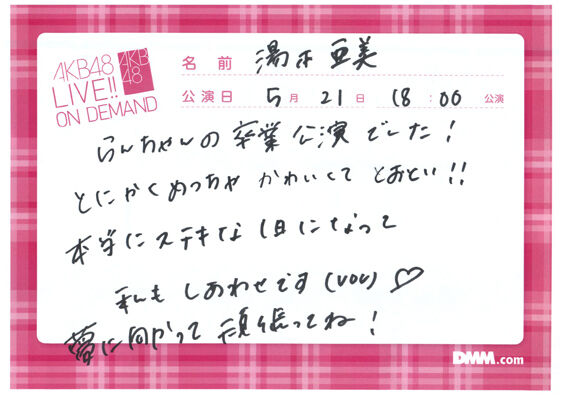 AKB48
LIVE!!
ON DEMAND
AKB
48
名前 湯本亜美
公演日 5月21日 18:00 公演
らんちゃんの卒業公演でした!
とにかくめっちゃ かわいくて とおとい!!
本当にステキな1日になって
私も しあわせです(UOU)♡
夢に向かって 頑張ってね!
DMM.com